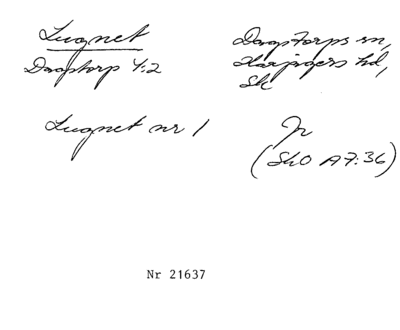 Lugnet
Dagstorp 4:2
Dagstorps sn,
Harjagers hd,
Sk
Lugnet nr 1
In
(SkO A7:36)
Nr 21637